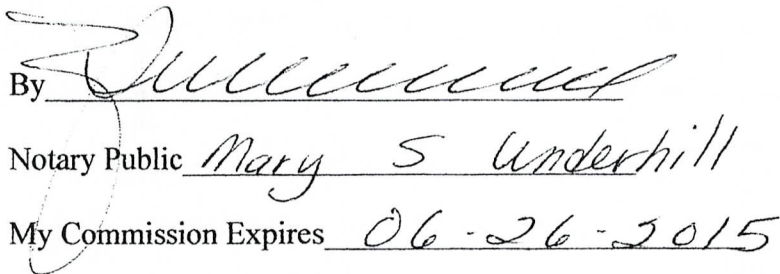 By
Notary Public Mary S Underhill
My Commission Expires 06-26-2015